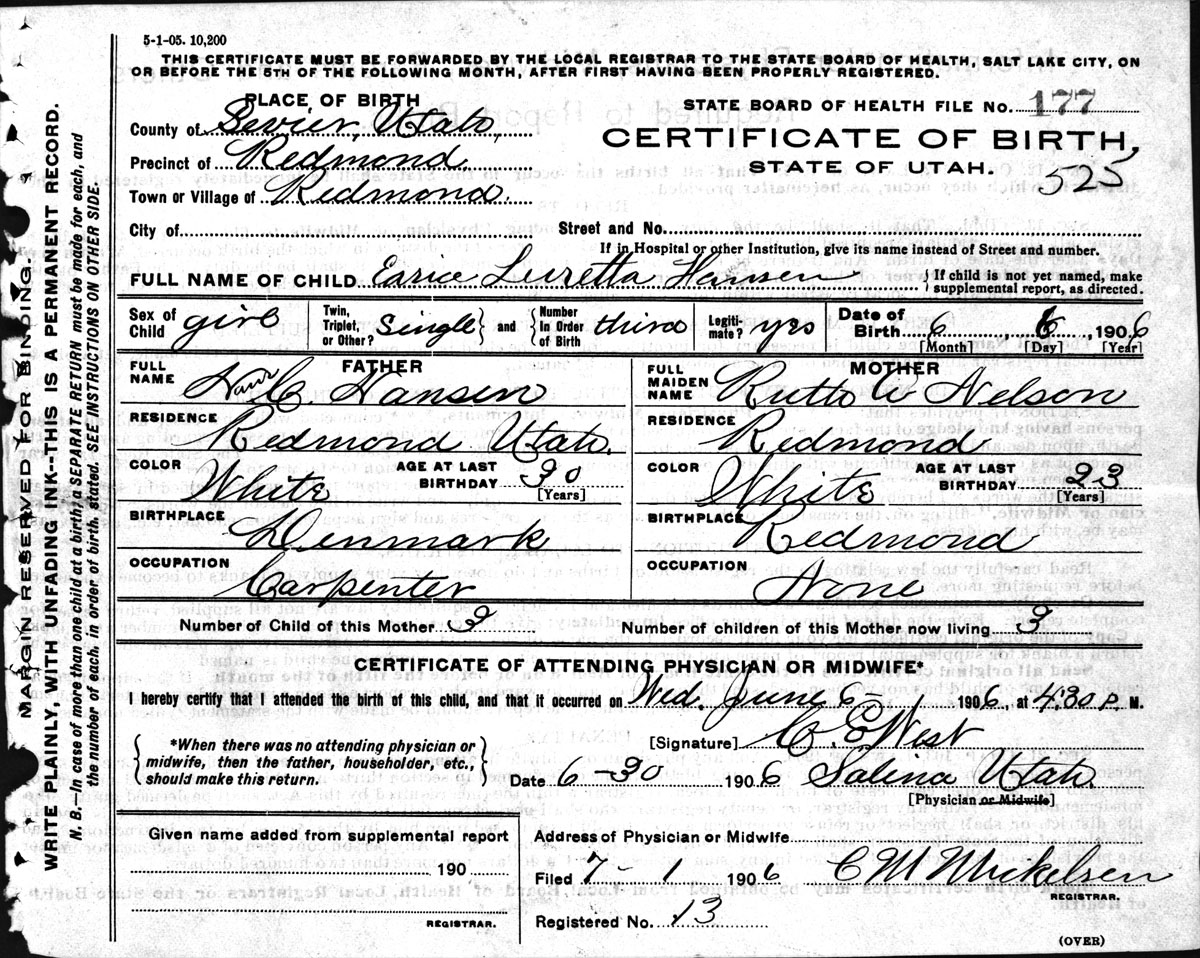 5-1-05. 10,200
THIS CERTIFICATE MUST BE FORWARDED BY THE LOCAL REGISTRAR TO THE STATE BOARD OF HEALTH, SALT LAKE CITY, ON
OR BEFORE THE 5TH OF THE FOLLOWING MONTH, AFTER FIRST HAVING BEEN PROPERLY REGISTERED.
PLACE OF BIRTH
County of Sevier, Utah,
Precinct of Redmond
Town or Village of Redmond.
STATE BOARD OF HEALTH FILE No. 177
CERTIFICATE OF BIRTH,
STATE OF UTAH.
525
City of Street and No.
If in Hospital or other Institution, give its name instead of Street and number.
FULL NAME OF CHILD Earice Luretta Hansen { If child is not yet named, make
supplemental report, as directed.
Sex of
Child girl
Twin,
Triplet,
or Other? Single } and { Number
In Order
of Birth third
Legiti-
mate? yes
Date of
Birth 6 , 6 , 1906
[Month] [Day] [Year]
FATHER
FULL
NAME Hans C. Hansen
RESIDENCE
Redmond Utah.
COLOR White AGE AT LAST
BIRTHDAY 30
[Years]
BIRTHPLACE
Denmark
OCCUPATION
Carpenter
MOTHER
FULL
MAIDEN
NAME Ruth A Nelson
RESIDENCE
Redmond
COLOR White AGE AT LAST
BIRTHDAY 23
[Years]
BIRTHPLACE
Redmond
OCCUPATION
None
Number of Child of this Mother 3 Number of children of this Mother now living 3
CERTIFICATE OF ATTENDING PHYSICIAN OR MIDWIFE*
I hereby certify that I attended the birth of this child, and that it occurred on Wed. June 6 1906, at 4:30 P. M.
{ *When there was no attending physician or
midwife, then the father, householder, etc.,
should make this return. }
[Signature] C. E West
Date 6-30 1906 Salina Utah.
[Physician or Midwife]
Given name added from supplemental report
190
REGISTRAR.
Address of Physician or Midwife
Filed 7-1 1906 C M Mickelsen
REGISTRAR.
Registered No. 13
(OVER)
MARGIN RESERVED FOR BINDING
WRITE PLAINLY, WITH UNFADING INK--THIS IS A PERMANENT RECORD.
N. B.--In case of more than one child at a birth, a SEPARATE RETURN must be made for each, and
the number of each, in order of birth, stated. SEE INSTRUCTIONS ON OTHER SIDE.